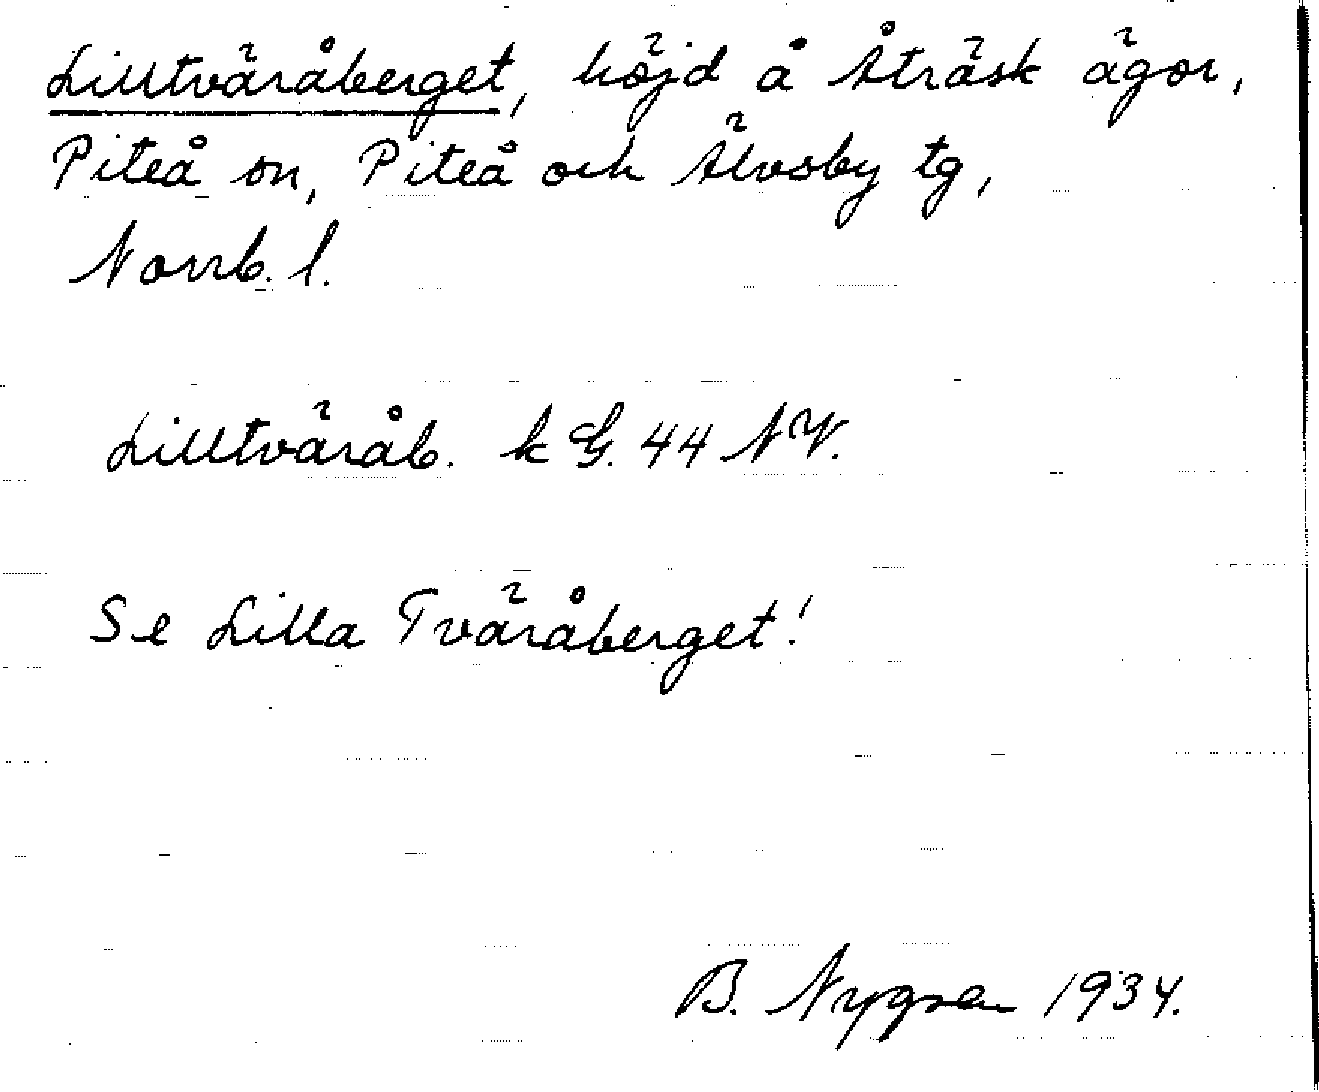 Lilltväråberget, höjd å Åträsk ägor,
Piteå sn, Piteå och Älvsby tg,
Norrb. l.
Lilltväråb. k G. 44 NV.
Se Lilla Tväråberget!
B. Nygren 1934.